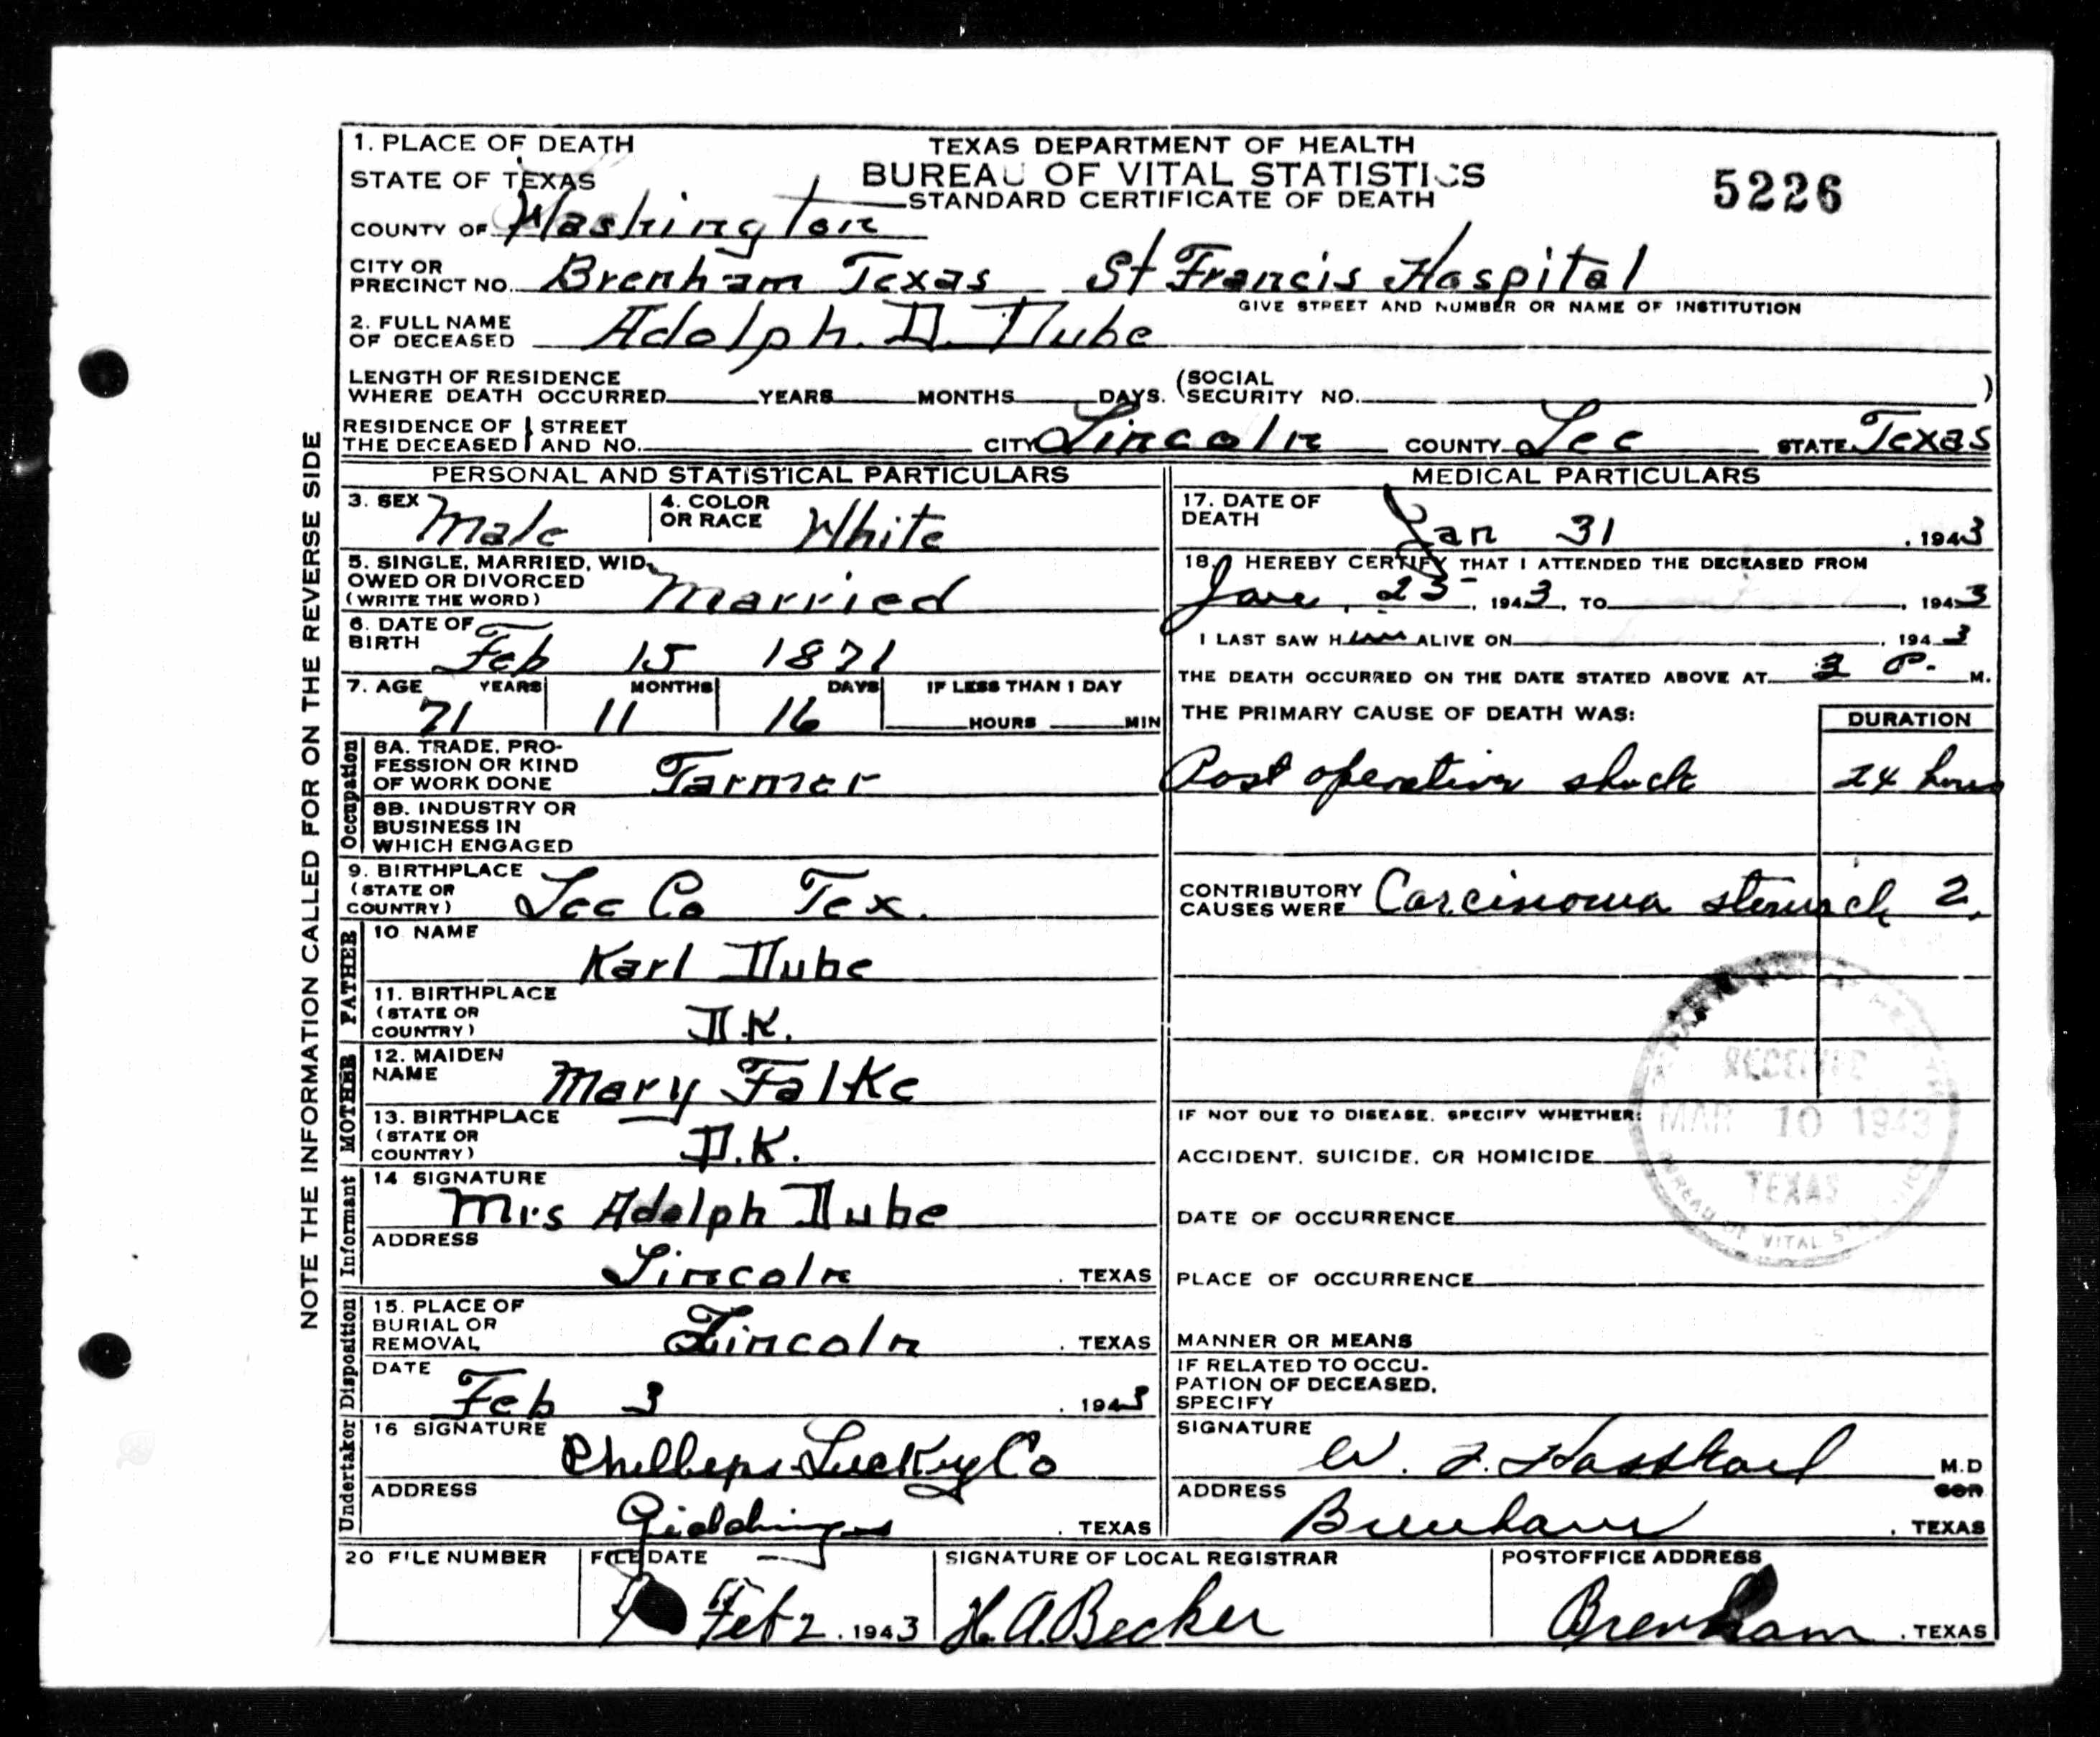 NOTE THE INFORMATION CALLED FOR ON THE REVERSE SIDE
1. PLACE OF DEATH
STATE OF TEXAS
TEXAS DEPARTMENT OF HEALTH
BUREAU OF VITAL STATISTICS
STANDARD CERTIFICATE OF DEATH
5226
COUNTY OF Washington
CITY OR PRECINCT NO. Brenham Texas St Francis Hospital
GIVE STREET AND NUMBER OR NAME OF INSTITUTION
2. FULL NAME OF DECEASED Adolph. D. Dube
LENGTH OF RESIDENCE WHERE DEATH OCCURRED YEARS MONTHS DAYS. (SOCIAL SECURITY NO. )
RESIDENCE OF THE DECEASED } STREET AND NO. CITY Lincoln COUNTY Lee STATE Texas
PERSONAL AND STATISTICAL PARTICULARS
3. SEX Male 4. COLOR OR RACE White
5. SINGLE, MARRIED, WIDOWED OR DIVORCED (WRITE THE WORD) Married
6. DATE OF BIRTH Feb 15 1871
7. AGE YEARS MONTHS DAYS IF LESS THAN 1 DAY
71 11 16 HOURS MIN
Occupation
8A. TRADE, PROFESSION OR KIND OF WORK DONE Farmer
8B. INDUSTRY OR BUSINESS IN WHICH ENGAGED
9. BIRTHPLACE (STATE OR COUNTRY) Lee Co Tex.
FATHER
10 NAME Karl Dube
11. BIRTHPLACE (STATE OR COUNTRY) D.K.
MOTHER
12. MAIDEN NAME Mary Falke
13. BIRTHPLACE (STATE OR COUNTRY) D.K.
Informant
14 SIGNATURE Mrs Adolph Dube
ADDRESS Lincoln . TEXAS
Disposition
15. PLACE OF BURIAL OR REMOVAL Lincoln . TEXAS
DATE Feb 3 . 1943
Undertaker
16 SIGNATURE Phillips Luckey Co
ADDRESS Giddings . TEXAS
MEDICAL PARTICULARS
17. DATE OF DEATH Jan 31 . 1943
18. I HEREBY CERTIFY THAT I ATTENDED THE DECEASED FROM
Jan. 25, 1943, TO , 1943
I LAST SAW Him ALIVE ON , 1943
THE DEATH OCCURRED ON THE DATE STATED ABOVE AT 3 P. M.
THE PRIMARY CAUSE OF DEATH WAS: DURATION
Post operative shock 24 hours
CONTRIBUTORY CAUSES WERE Carcinoma stomach 2.
RECEIVED
MAR 10 1943
TEXAS
BUREAU OF VITAL
IF NOT DUE TO DISEASE, SPECIFY WHETHER:
ACCIDENT, SUICIDE, OR HOMICIDE
DATE OF OCCURRENCE
PLACE OF OCCURRENCE
MANNER OR MEANS
IF RELATED TO OCCUPATION OF DECEASED, SPECIFY
SIGNATURE W. F. Hasskarl M.D
ADDRESS Brenham . TEXAS
20 FILE NUMBER FILE DATE SIGNATURE OF LOCAL REGISTRAR POSTOFFICE ADDRESS
Feb 2 . 1943 H. A. Becker Brenham . TEXAS